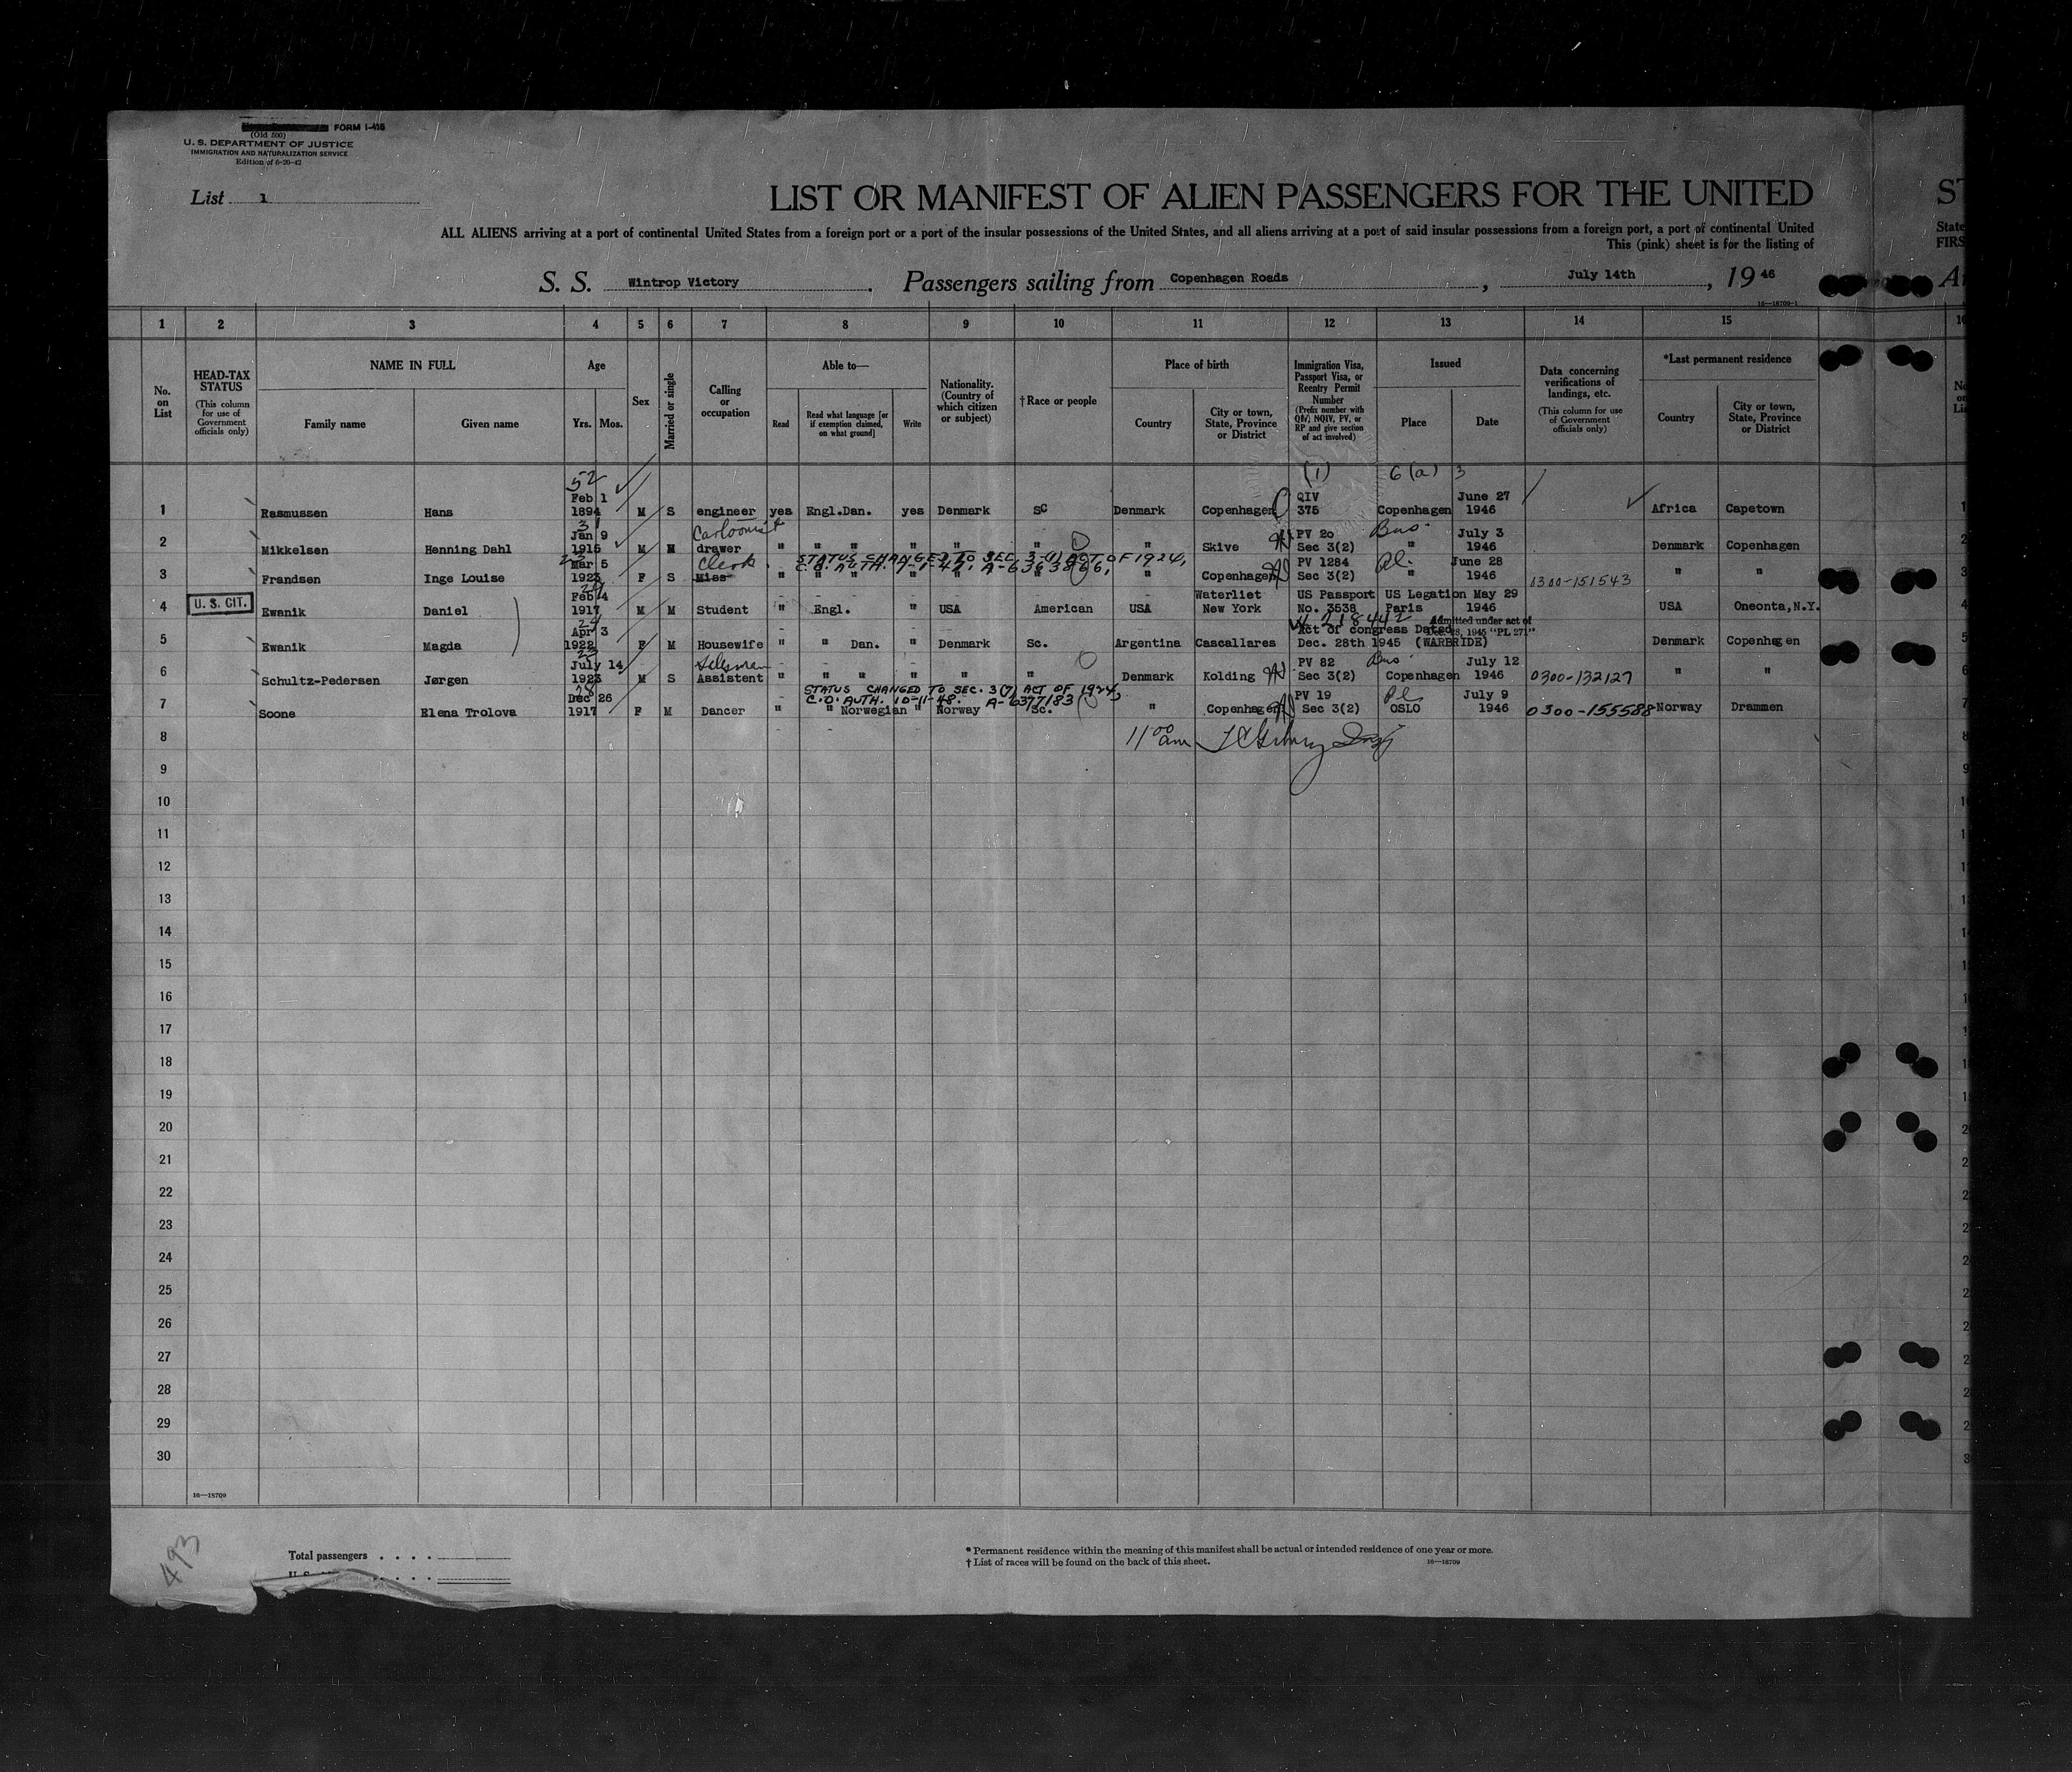 FORM I-415
(Old 500)
U. S. DEPARTMENT OF JUSTICE
IMMIGRATION AND NATURALIZATION SERVICE
Edition of 6-20-42
List 1
LIST OR MANIFEST OF ALIEN PASSENGERS FOR THE UNITED
ST
ALL ALIENS arriving at a port of continental United States from a foreign port or a port of the insular possessions of the United States, and all aliens arriving at a port of said insular possessions from a foreign port, a port of continental United
State
This (pink) sheet is for the listing of
FIRS
S. S. Wintrop Victory. Passengers sailing from Copenhagen Roads, July 14th, 19 46
16—18709-1
1 2 3 4 5 6 7 8 9 10 11 12 13 14 15
No. on List
HEAD-TAX STATUS
(This column for use of Government officials only)
NAME IN FULL
Family name Given name
Age
Yrs. Mos.
Sex
Married or single
Calling or occupation
Able to—
Read
Read what language [or if exemption claimed, on what ground]
Write
Nationality. (Country of which citizen or subject)
†Race or people
Place of birth
Country
City or town, State, Province or District
Immigration Visa, Passport Visa, or Reentry Permit Number
(Prefix number with QIV, NQIV, PV, or RP and give section of act involved)
Issued
Place Date
Data concerning verifications of landings, etc.
(This column for use of Government officials only)
*Last permanent residence
Country
City or town, State, Province or District
52 (1) 6(a) 3
Feb 1 QIV June 27
1 Rasmussen Hans 1894 M S engineer yes Engl.Dan. yes Denmark Sc Denmark Copenhagen 375 Copenhagen 1946 Africa Capetown
31 Cartoonist
Jan 9 PV 20 Bus July 3
2 Mikkelsen Henning Dahl 1915 M M drawer " " " " " " " Skive Sec 3(2) " 1946 Denmark Copenhagen
23 Clerk STATUS CHANGED TO SEC. 3-(1) ACT OF 1924,
C.O. AUTH. 7-1-47. A-6363866,
Mar 5 PV 1284 Pl. June 28
3 Frandsen Inge Louise 1923 F S Miss " " " " " " " Copenhagen Sec 3(2) " 1946 0300-151543 " "
U. S. CIT.
Feb 4 Waterliet US Passport US Legation May 29
4 Ewanik Daniel 1917 M M Student " Engl. " USA American USA New York No. 3538 Paris 1946 USA Oneonta,N.Y.
24 218442 Admitted under act of
Apr 3 Act of congress Dated Dec. 28, 1945 "PL 271"
5 Ewanik Magda 1922 F M Housewife " " Dan. " Denmark Sc. Argentina Cascallares Dec. 28th 1945 (WARBRIDE) Denmark Copenhagen
23 Salesman
July 14 PV 82 Bus July 12
6 Schultz-Pedersen Jørgen 1923 M S Assistent " " " " " " Denmark Kolding Sec 3(2) Copenhagen 1946 0300-132127 " "
28 STATUS CHANGED TO SEC. 3(7) ACT OF 1924,
C.O. AUTH. 10-11-48. A-6377183
Dec 26 PV 19 Pl July 9
7 Soone Elena Trolova 1917 F M Dancer " " Norwegian " Norway Sc. " Copenhagen Sec 3(2) OSLO 1946 0300-155588 Norway Drammen
8 11 00 am
9
10
11
12
13
14
15
16
17
18
19
20
21
22
23
24
25
26
27
28
29
30
16—18709
493
Total passengers
* Permanent residence within the meaning of this manifest shall be actual or intended residence of one year or more.
† List of races will be found on the back of this sheet.
16—18709